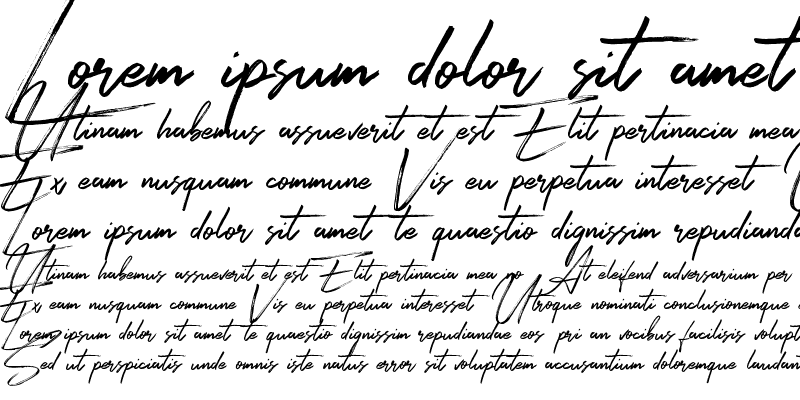 Lorem ipsum dolor sit amet
Utinam habemus assueverit et est Elit pertinacia mea
Ex eam nusquam commune Vis eu perpetua interesset
Lorem ipsum dolor sit amet te quaestio dignissim repudianda
Utinam habemus assueverit et est Elit pertinacia mea no At eleifend adversarium per
Ex eam nusquam commune Vis eu perpetua interesset Utroque nominati conclusionemque
Lorem ipsum dolor sit amet te quaestio dignissim repudiandae eos pri an vocibus facilisis volupt
Sed ut perspiciatis unde omnis iste natus error sit voluptatem accusantium doloremque laudan